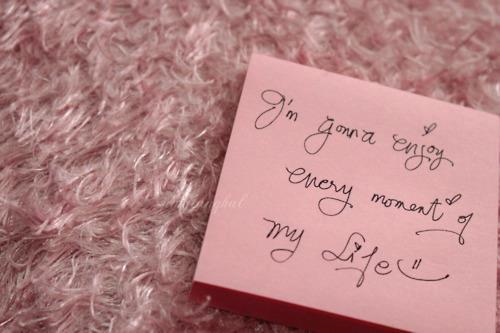 I'm gonna enjoy
every moment of
my Life